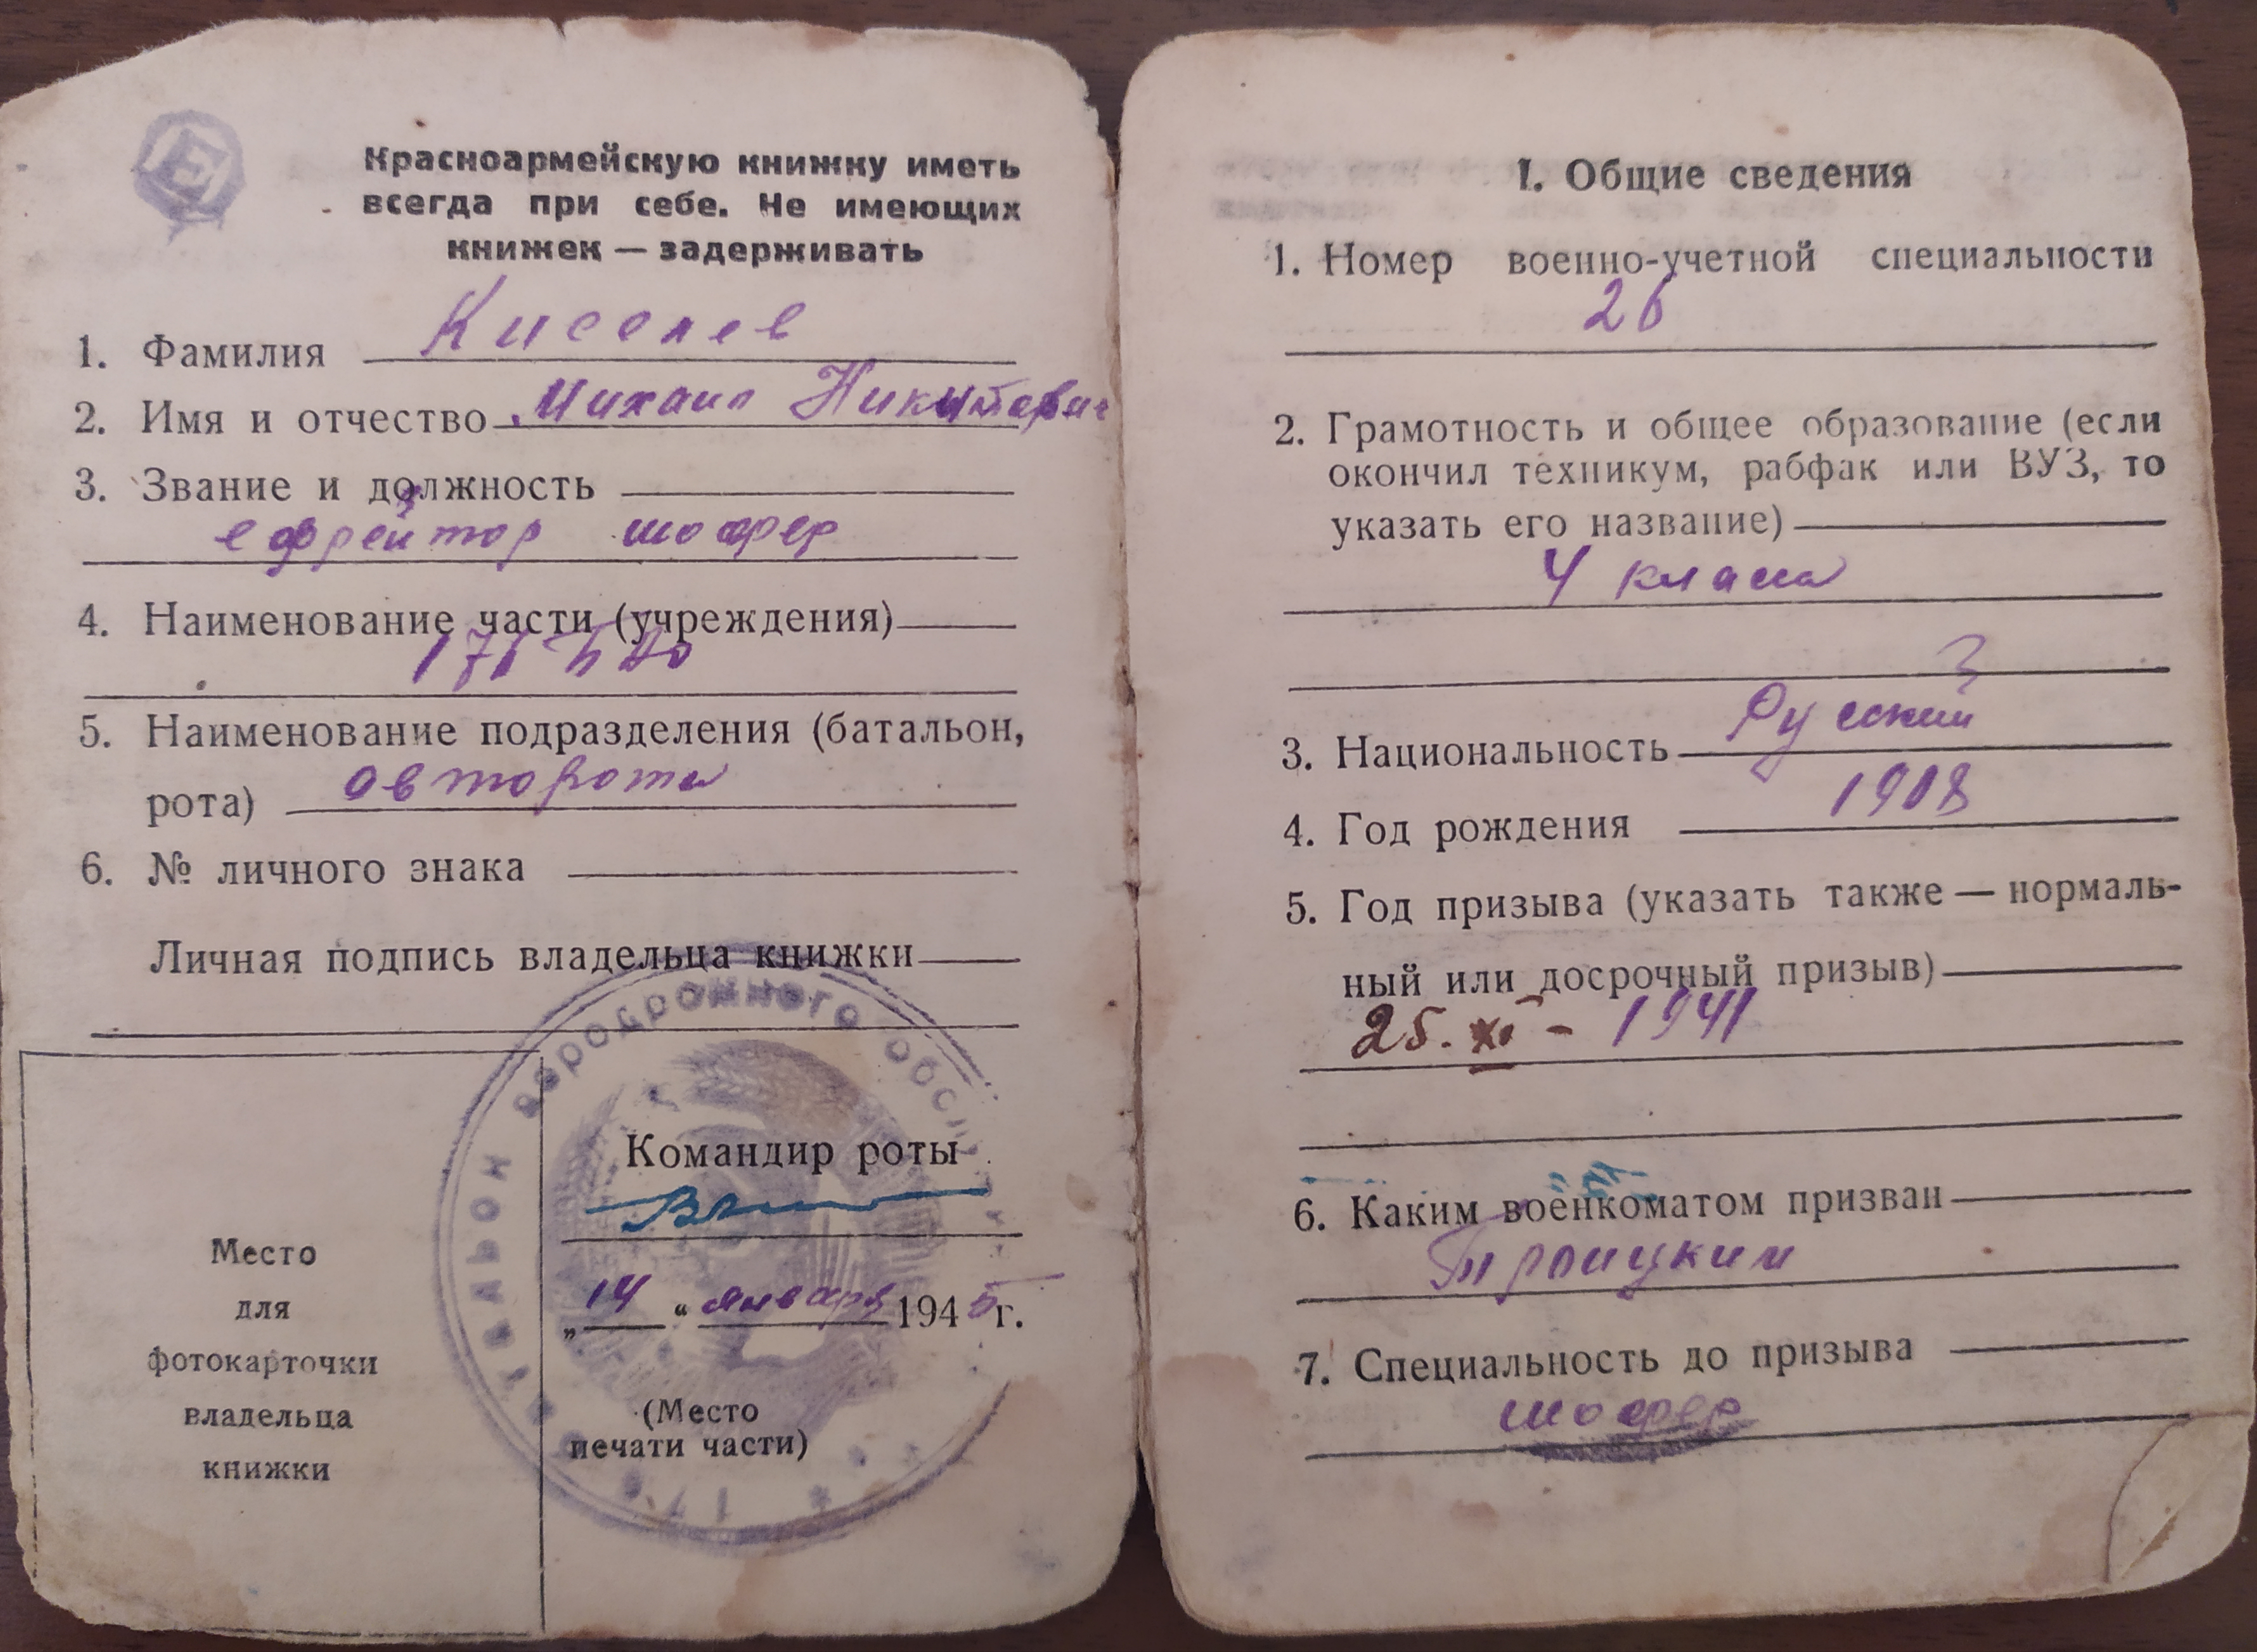 Е
Красноармейскую книжку иметь
всегда при себе. Не имеющих
книжек — задерживать
1. Фамилия Киселев
2. Имя и отчество Михаил Никитович
3. Звание и должность
ефрейтор шофер
4. Наименование части (учреждения)
5. Наименование подразделения (батальон,
рота) авторота
6. № личного знака
Личная подпись владельца книжки
Место
для
фотокарточки
владельца
книжки
батальон аэродромного обсл
Командир роты
„14“ января 1945г.
(Место
печати части)
I. Общие сведения
1. Номер военно-учетной специальности
26
2. Грамотность и общее образование (если
окончил техникум, рабфак или ВУЗ, то
указать его название)
4 класса
3. Национальность Русский
4. Год рождения 1908
5. Год призыва (указать также — нормаль-
ный или досрочный призыв)
25. XI - 1941
6. Каким военкоматом призван
Троицким
7. Специальность до призыва
шофер